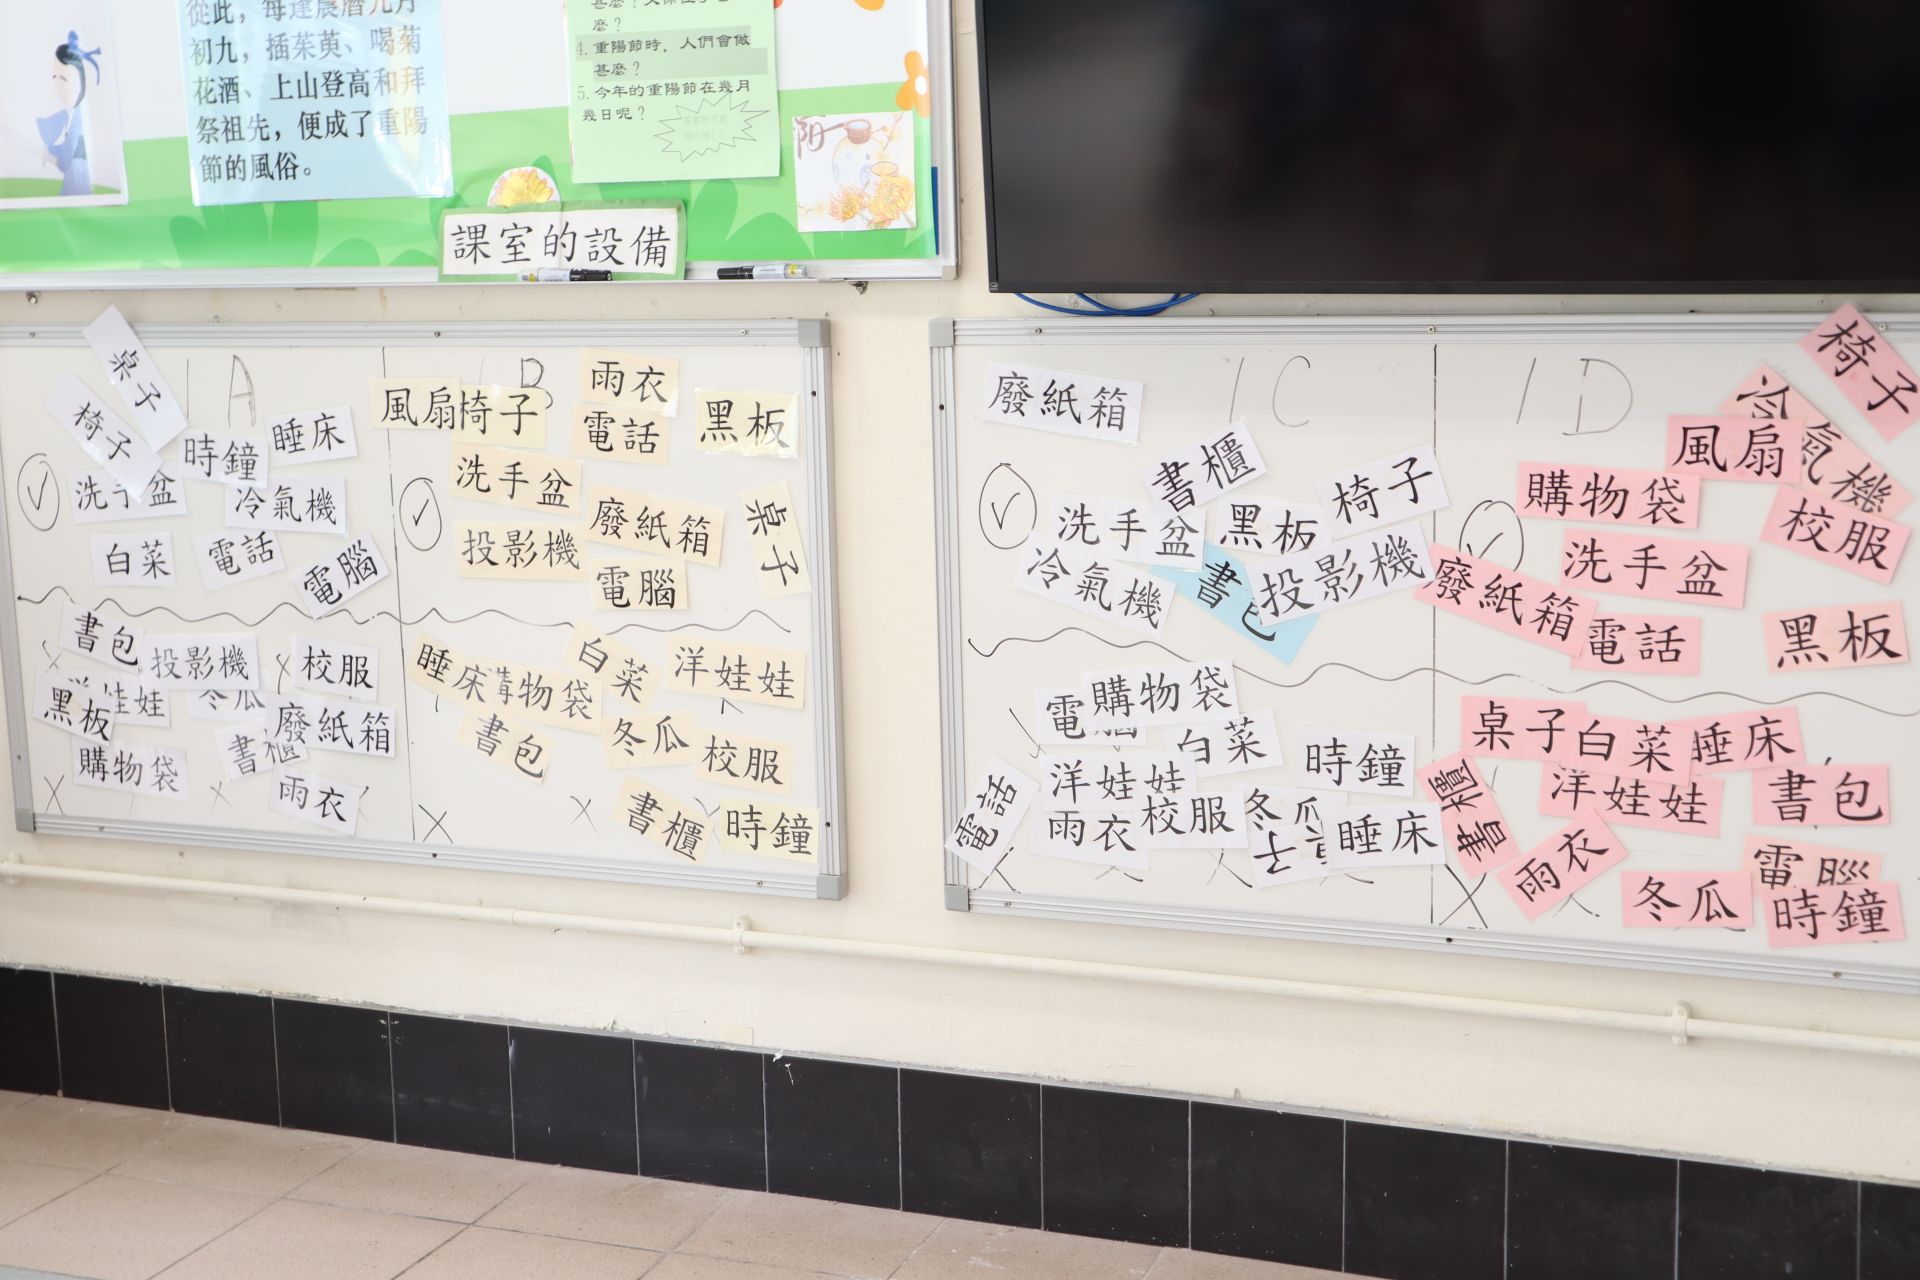 從此，每逢農曆九月
初九，插茱萸、喝菊
花酒、上山登高和拜
祭祖先，便成了重陽
節的風俗。
麼？
4. 重陽節時，人們會做
甚麼？
5. 今年的重陽節在幾月
幾日呢？
陽
課室的設備
1A
桌子
椅子
時鐘
睡床
洗手盆
冷氣機
白菜
電話
電腦
書包
投影機
校服
黑板
洋娃娃
冬瓜
廢紙箱
購物袋
書櫃
雨衣
1B
風扇
椅子
雨衣
電話
黑板
洗手盆
投影機
廢紙箱
電腦
桌子
睡床
購物袋
白菜
洋娃娃
書包
冬瓜
校服
書櫃
時鐘
1C
廢紙箱
書櫃
椅子
洗手盆
黑板
冷氣機
書包
投影機
電腦
購物袋
白菜
時鐘
洋娃娃
電話
雨衣
校服
冬瓜
子
睡床
1D
椅子
冷氣機
風扇
購物袋
校服
洗手盆
廢紙箱
電話
黑板
桌子
白菜
睡床
書櫃
洋娃娃
書包
雨衣
電腦
冬瓜
時鐘